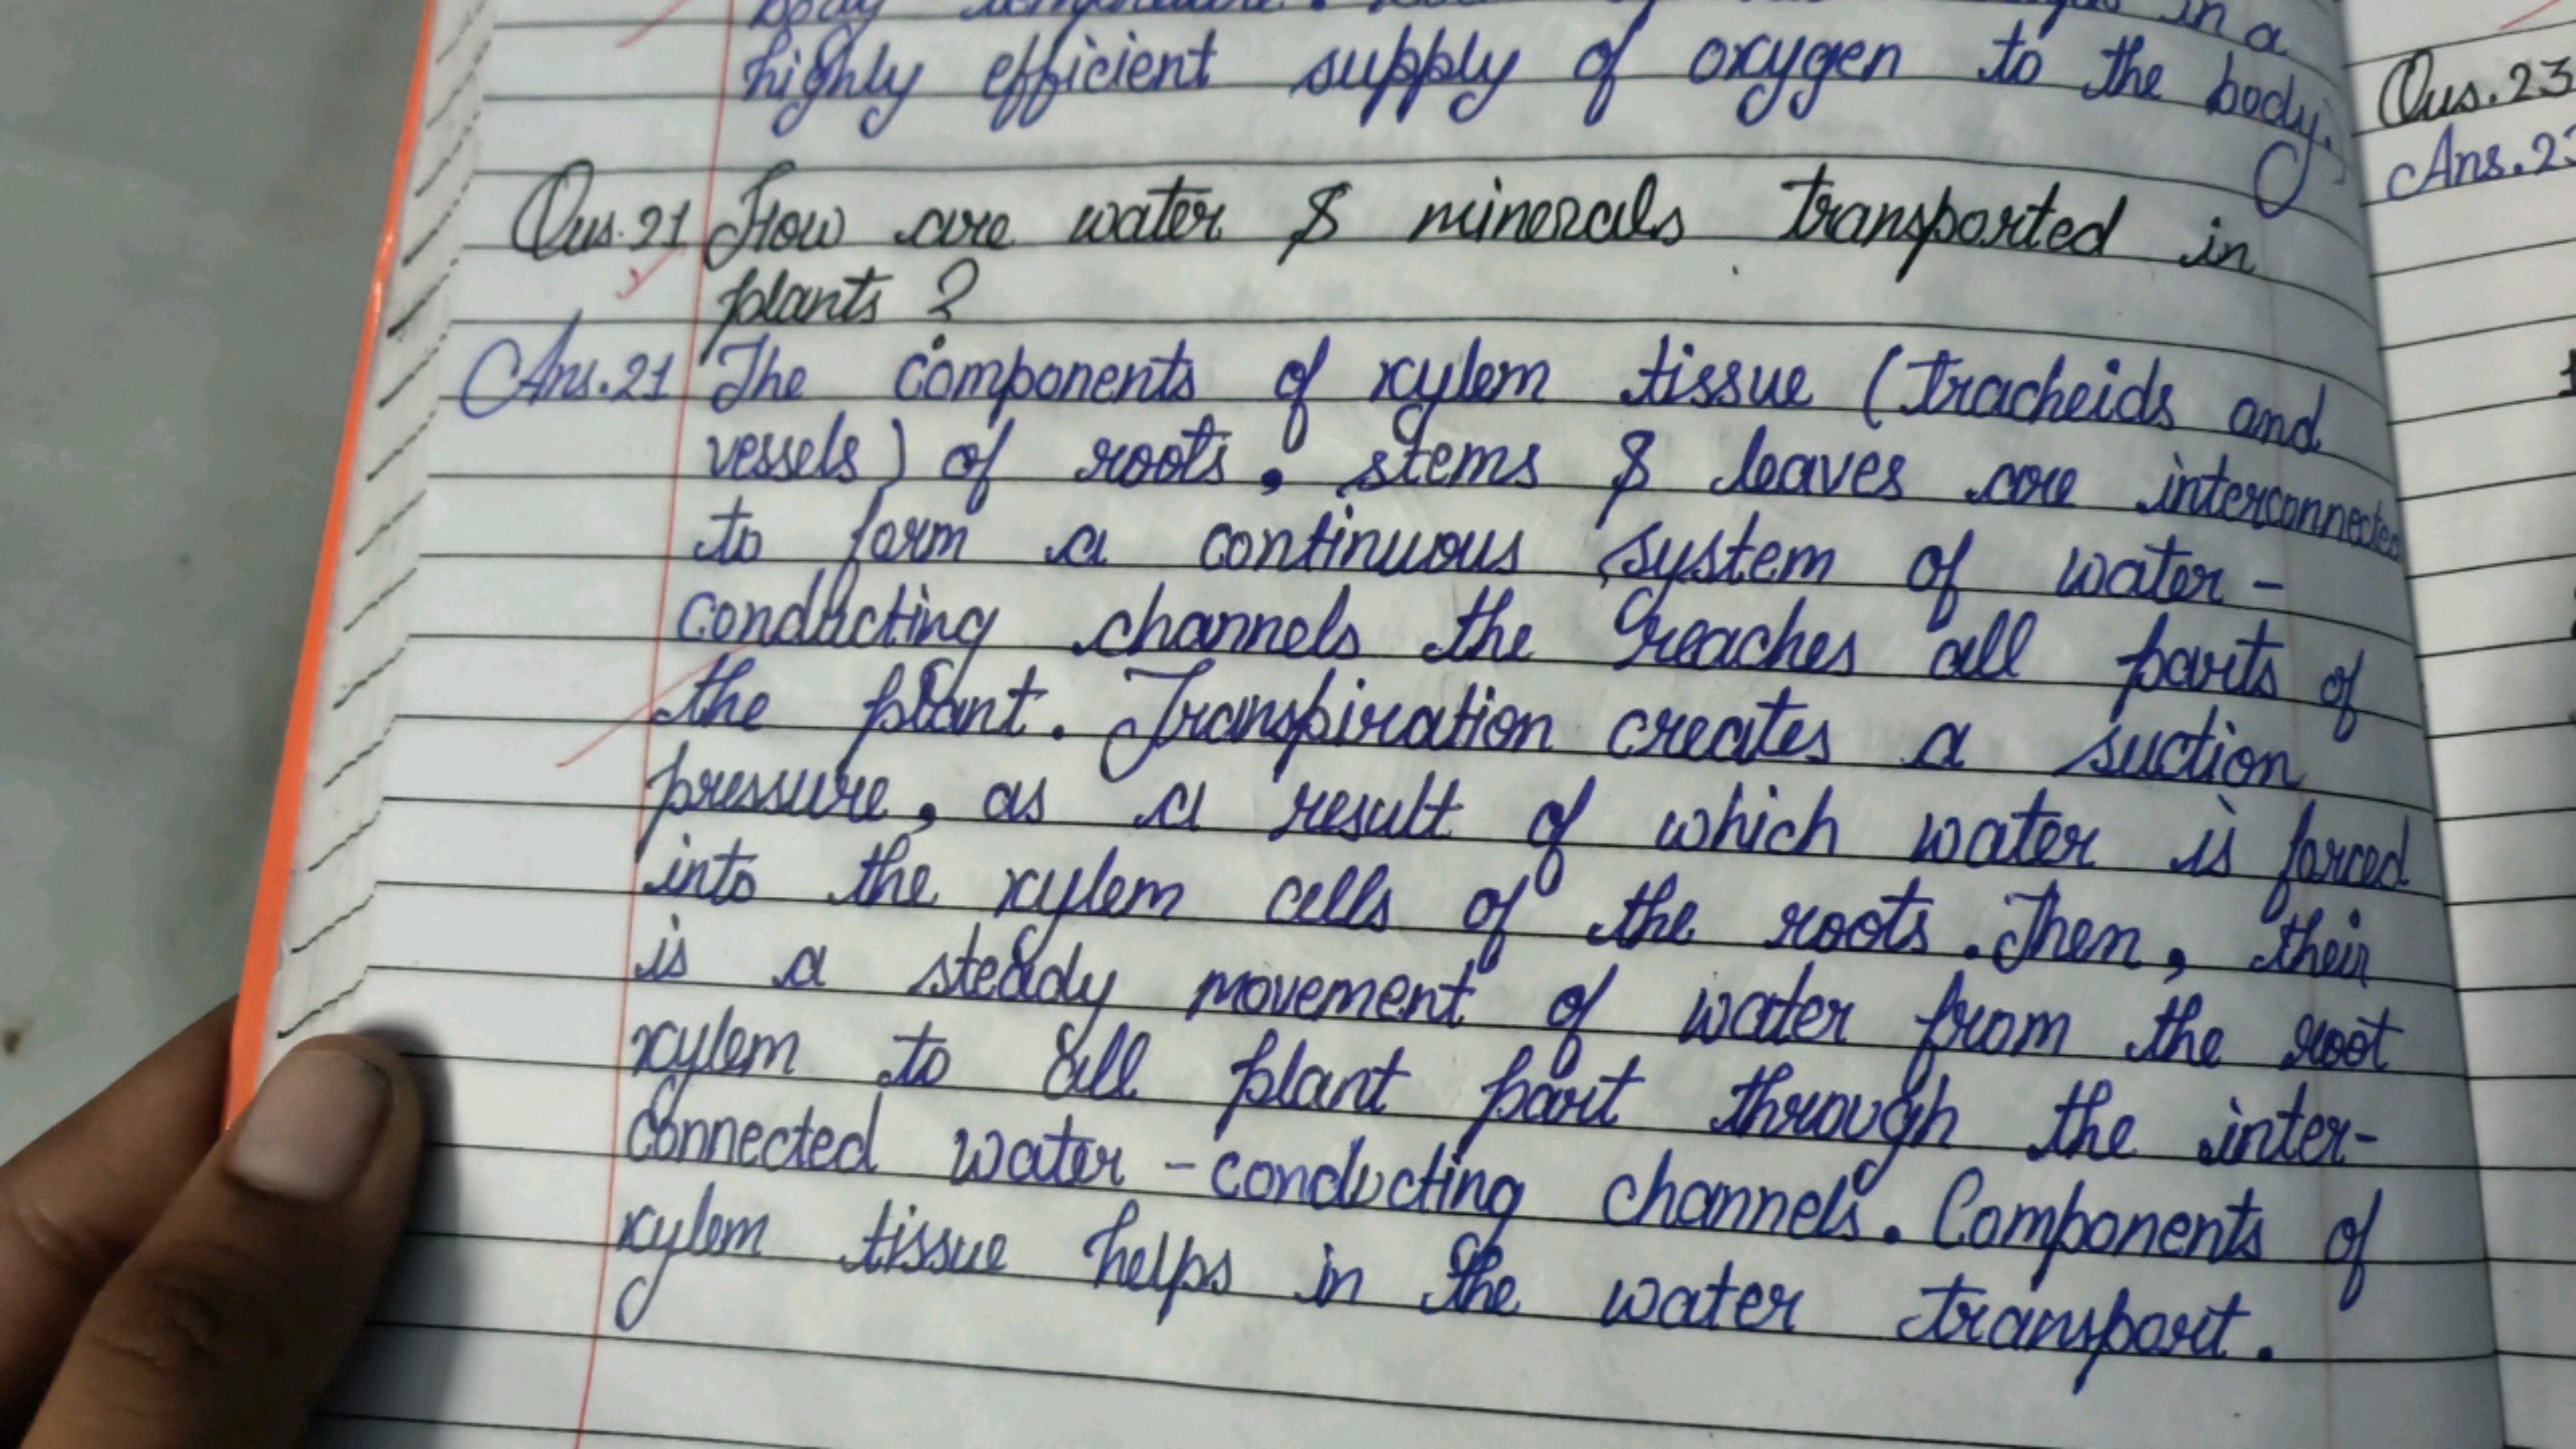 body temperature. in a
highly efficient supply of oxygen to the body.
Qus.21 How are water & minerals transported in
plants ?
Ans.21 The components of xylem tissue (tracheids and
vessels) of roots, stems & leaves are interconnected
to form a continuous system of water-
conducting channels the reaches all parts of
the plant. Transpiration creates a suction
pressure, as a result of which water is forced
into the xylem cells of the roots. Then, their
is a steady movement of water from the root
xylem to all plant part through the inter-
connected water-conducting channels. Components of
xylem tissue helps in the water transport.
Qus.23
Ans.23